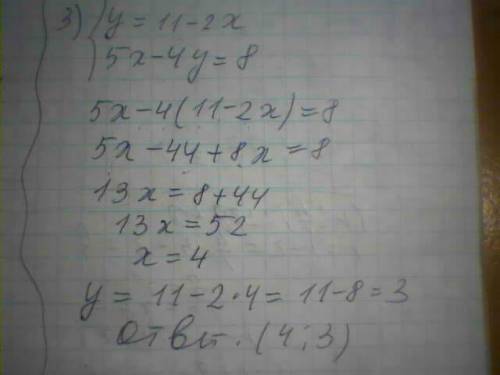 3) { y = 11 - 2x
5x - 4y = 8
5x - 4(11 - 2x) = 8
5x - 44 + 8x = 8
13x = 8 + 44
13x = 52
x = 4
y = 11 - 2·4 = 11 - 8 = 3
Ответ. (4; 3)